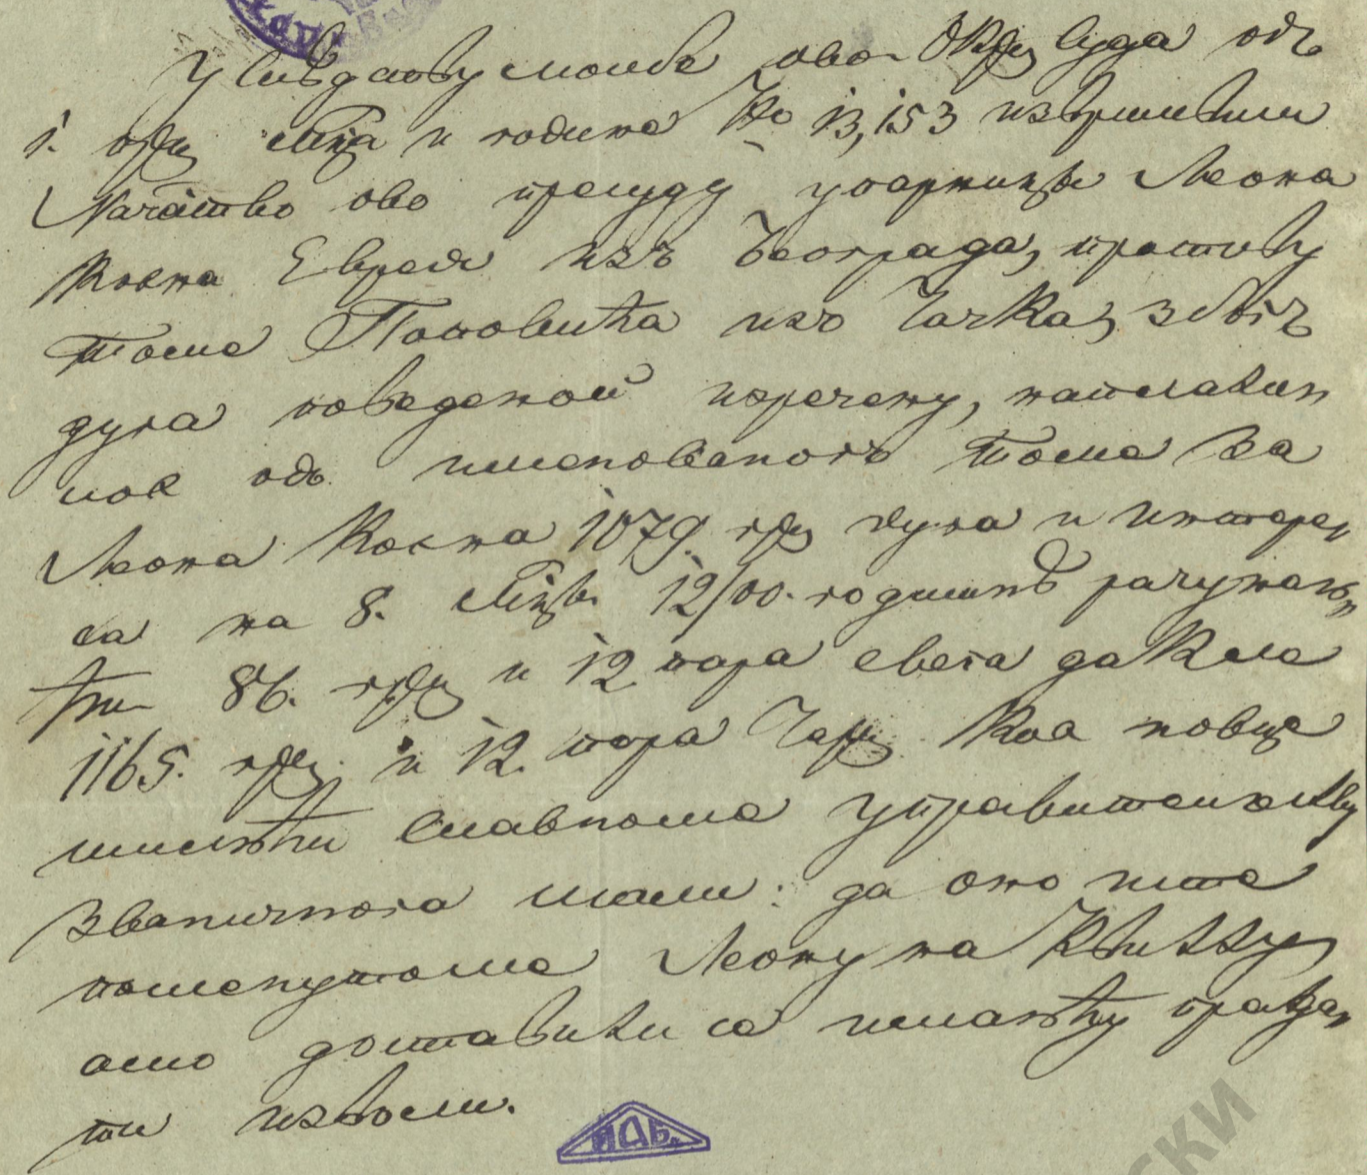 У слѣдству молбе ово Окр. Суда одъ
1. пр. Мца и године No 13,153 извршивши
Началство ово пресуду у парници Леона
Коена Евреа изъ Београда, противу
Томе Поповића изъ Чачка, збогъ
дуга поведеной изречену, наплатило
є одъ именованогъ Томе за
Леона Коена 1079. гр. дуга и интере„
са на 8. Мци 12/00. годишнѣ рачунаю„
ћи 86. гр. и 12 пара свега дакле
1165. гр. и 12. пара Чар. коа новце
шилюћи Славноме Управителству
званично га моли: да оно исте
поменутоме Леону на квиту
амо доставити се имаюћу предa„
ти изволи.
ИАБ.
СКИ